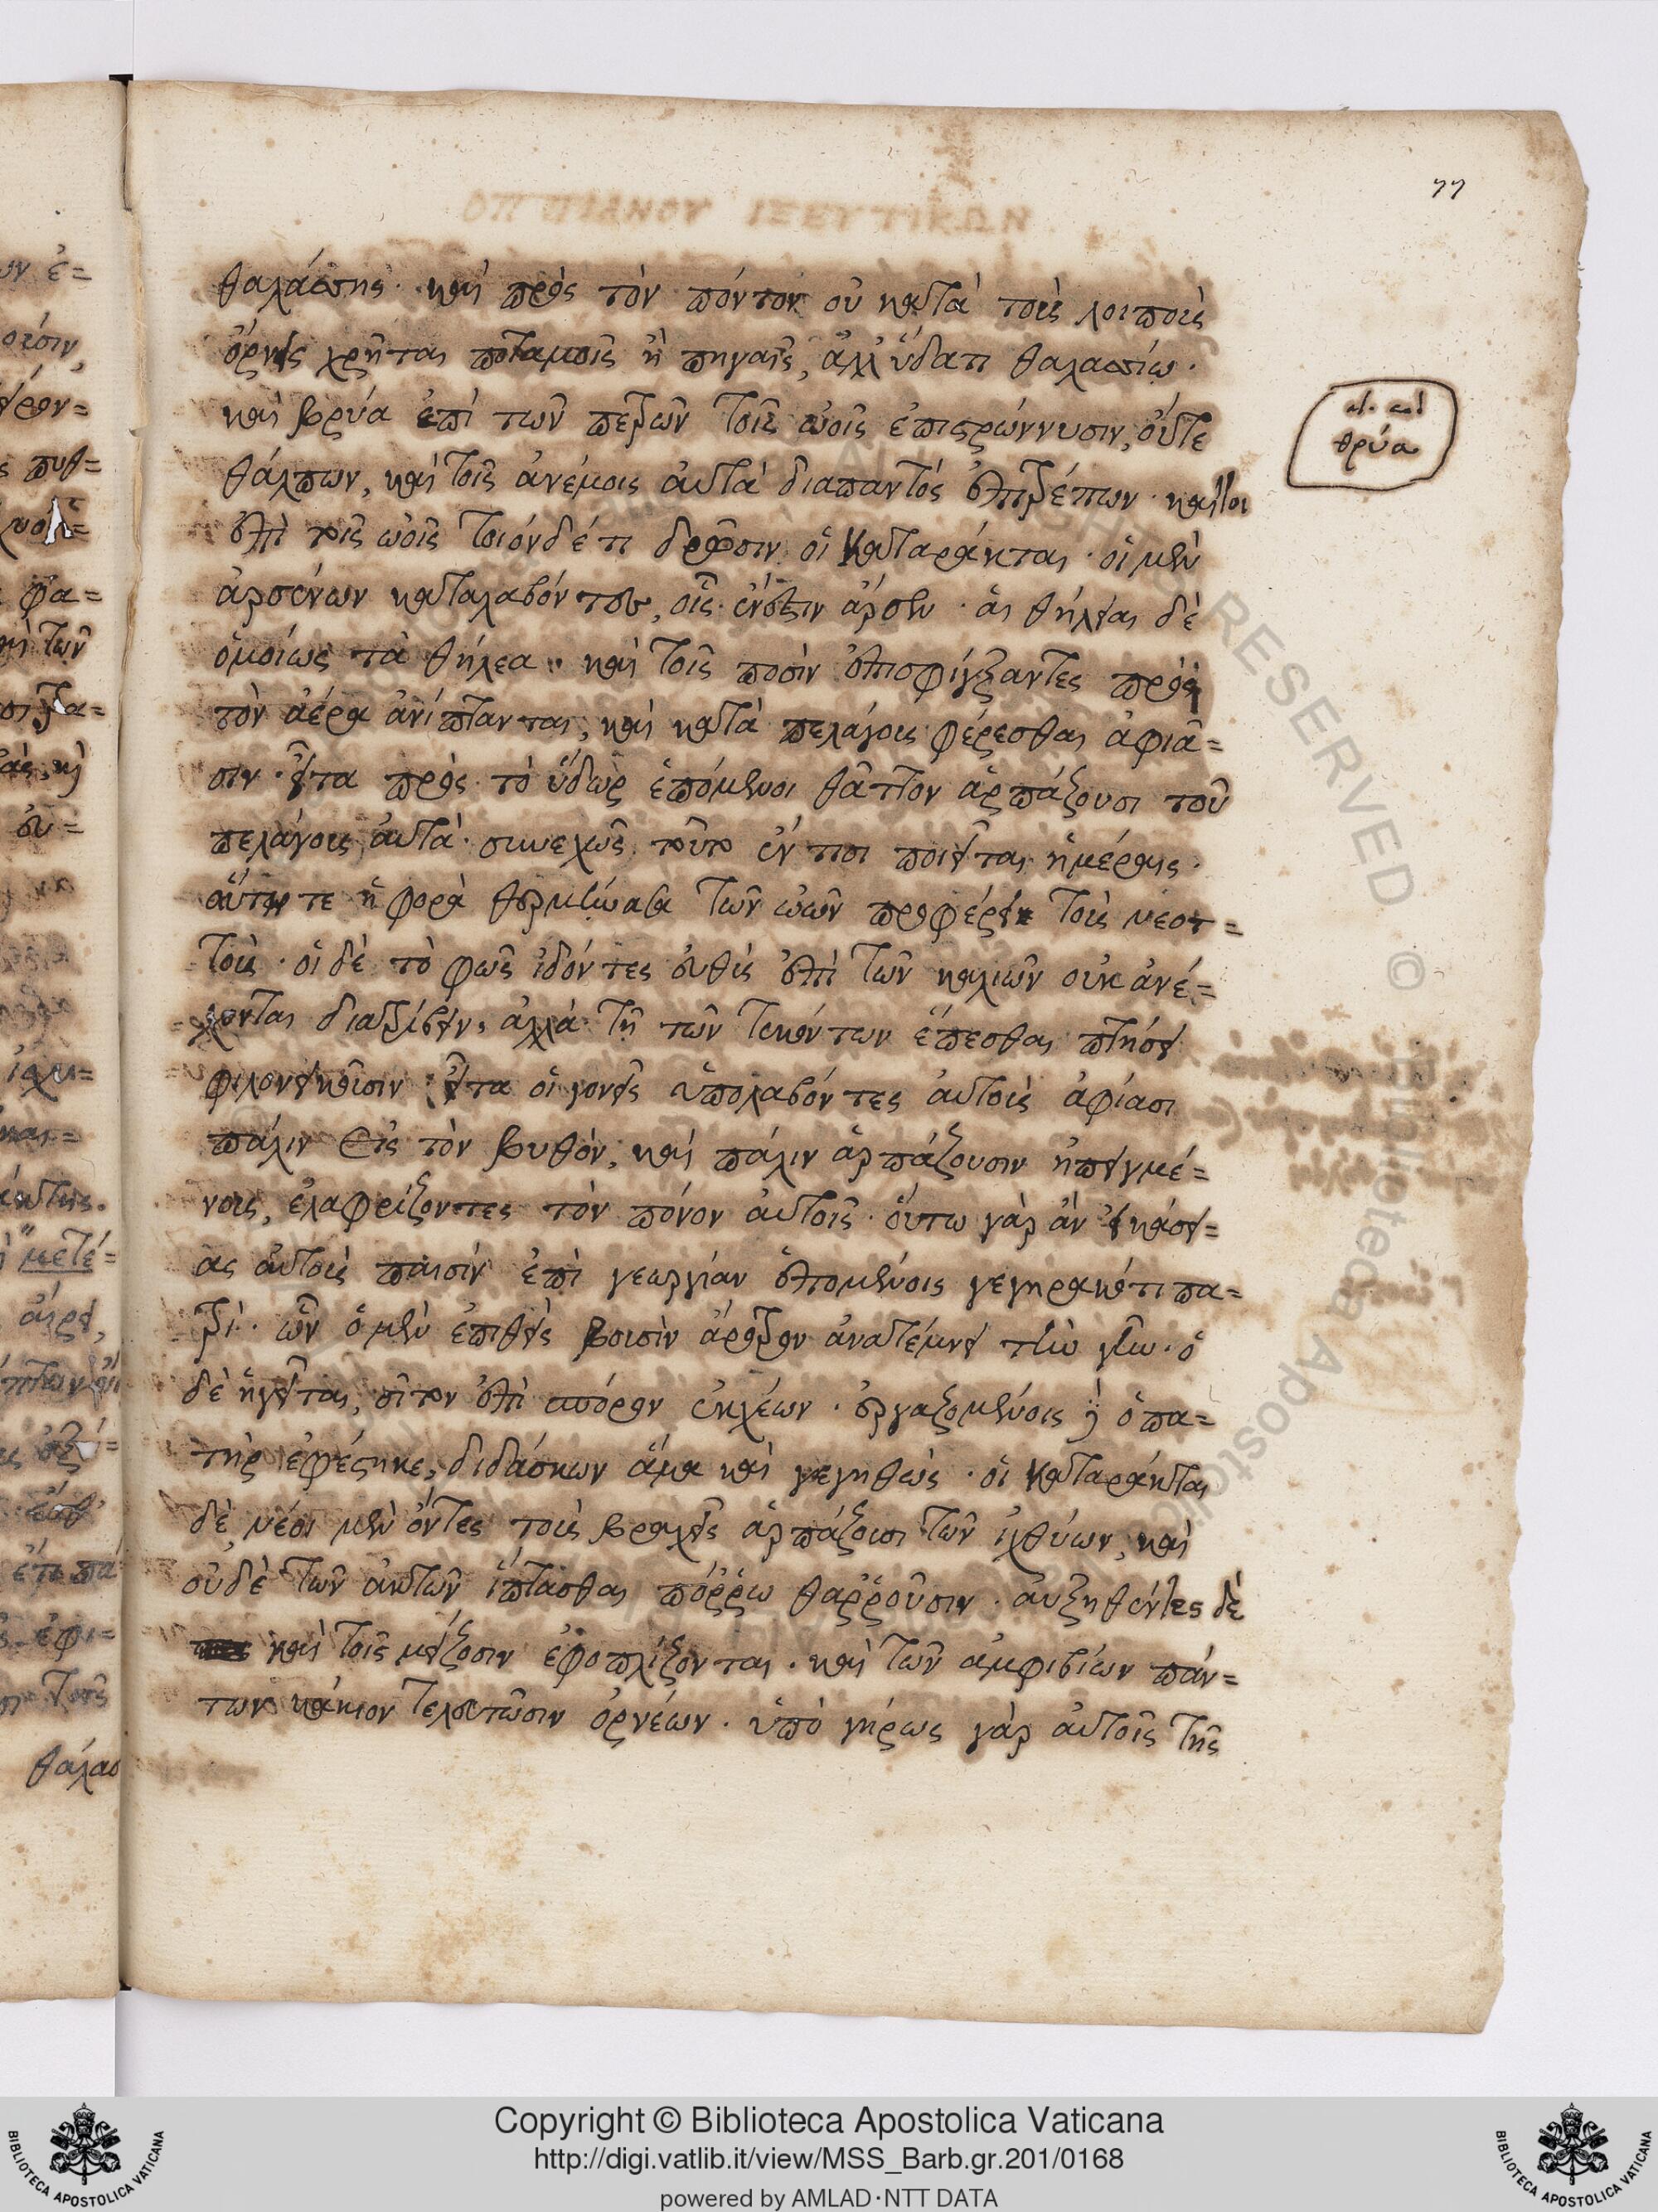 ΟΠΠΙΑΝΟΥ ΙΞΕΥΤΙΚΩΝ
77
θαλάσσης. καὶ πρὸς τὸν πόντον οὐ κατὰ τοὺς λοιποὺς
ὄρνεις χρῆται ποταμοῖς ἢ πηγαῖς, ἀλλ' ὕδατι θαλασσίω.
καὶ βρύα ἐπὶ τῶν πετρῶν τοῖς ὠοῖς ἐπιστρώννυσιν, οὔτε
θάλπων, καὶ τοῖς ἀνέμοις αὐτὰ διαπαντὸς ἐπιτρέπων. καίτοι
ἐπὶ τοῖς ὠοῖς τοιόνδέ τι δρῶσιν οἱ καταράκται. οἱ μὲν
ἀρσένων καταλαβόντες, οἷς ἔνεστιν ἄρσεν. αἱ θήλειαι δὲ
ὁμοίως τὰ θήλεα. καὶ τοῖς ποσὶν ἐπισφίγξαντες πρὸς
τὸν ἀέρα ἀνίπτανται, καὶ κατὰ πελάγους φέρεσθαι ἀφιᾶ=
σιν. εἶτα πρὸς τὸ ὕδωρ ἑπόμενοι θᾶττον ἁρπάζουσι τοῦ
πελάγους αὐτά. συνεχῶς τοῦτο ἔν τισι ποιεῖται ἡμέραις.
αὕτη τε ἡ φορὰ θερμήνασα τῶν ὠῶν προφέρει τοὺς νεοτ=
τοὺς. οἱ δὲ τὸ φῶς ἰδόντες εὐθὺς ἐπὶ τῶν καλιῶν οὐκ ἀνέ=
χονται διατρίβειν, ἀλλὰ τῇ τῶν τεκόντων ἕπεσθαι πτήσει
φιλονεικοῦσιν. εἶτα οἱ γονεῖς ὑπολαβόντες αὐτοὺς ἀφίασι
πάλιν εἰς τὸν βυθὸν, καὶ πάλιν ἁρπάζουσιν ἠπειγμέ=
νους, ἐλαφρίζοντες τὸν πόνον αὐτοῖς. οὕτω γὰρ ἂν εἰκάσει=
ας αὐτοὺς παισὶν ἐπὶ γεωργίαν ἑπομένοις γεγηρακότι πα=
τρί. ὧν ὁ μὲν ἐπιθεὶς βουσὶν ἄροτρον ἀνατέμνει τὴν γῆν. ὁ
δὲ ἡγεῖται, σῖτον ἐπὶ σπόρον ἐκχέων. ἐργαζομένοις δὲ ὁ πα=
τὴρ ἐφέστηκε, διδάσκων ἅμα καὶ γεγηθώς. οἱ καταράκται
δὲ νέοι μὲν ὄντες τοὺς βραχεῖς ἁρπάζουσι τῶν ἰχθύων, καὶ
οὐδὲ τῶν ἀκτῶν ἵπτασθαι πόῤῥω θαῤῥοῦσιν. αὐξηθέντες δὲ
καὶ τοῖς μείζοσιν ἐφοπλίζονται. καὶ τῶν ἀμφιβίων πάν=
των κάκιον τελευτῶσιν ὀρνέων. ὑπὸ γήρως γὰρ αὐτοῖς τῆς
θρύα
θάλασ
Copyright © Biblioteca Apostolica Vaticana
http://digi.vatlib.it/view/MSS_Barb.gr.201/0168
powered by AMLAD·NTT DATA
BIBLIOTECA APOSTOLICA VATICANA
BIBLIOTECA APOSTOLICA VATICANA